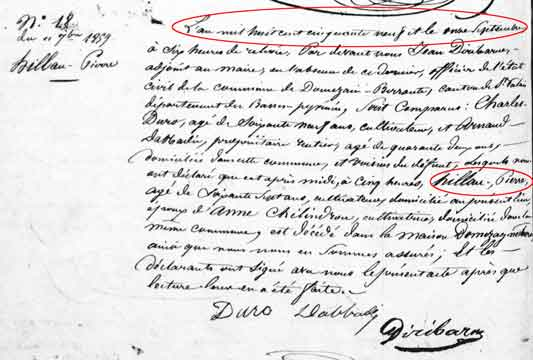 No. 18
du 11 7bre 1859
hillau-Pierre
L'an mil huit cent cinquante neuf et le onze Septembre
à Six heures de relevée, Par devant nous Jean Diribarne,
adjoint au maire, en l'absence de ce dernier, officier de l'état
civil de la commune de Domezain-Berraute, canton de St Palais
département des Basses-pyrénées, Sont Comparus: Charles
Duro, agé de Soixante neuf ans, cultivateur, et Arnaud
Dabbadie, propriétaire rentier, agé de quarante deux ans,
domiciliés dans cette commune, et voisins du défunt, Lesquels nous
ont déclaré que cet après midi, à Cinq heures, hillau-Pierre,
agé de Soixante ans, cultivateur, domicilié au présent lieu,
époux d'Anne Chilindron, cultivatrice, domiciliée dans la
même commune, est décédé dans la maison
ainsi que nous nous en Sommes assurés; Et les
déclarants ont Signé avec nous le présent acte après que
lecture Leur en a été faite.
Duro Dabbadie
Diribarne